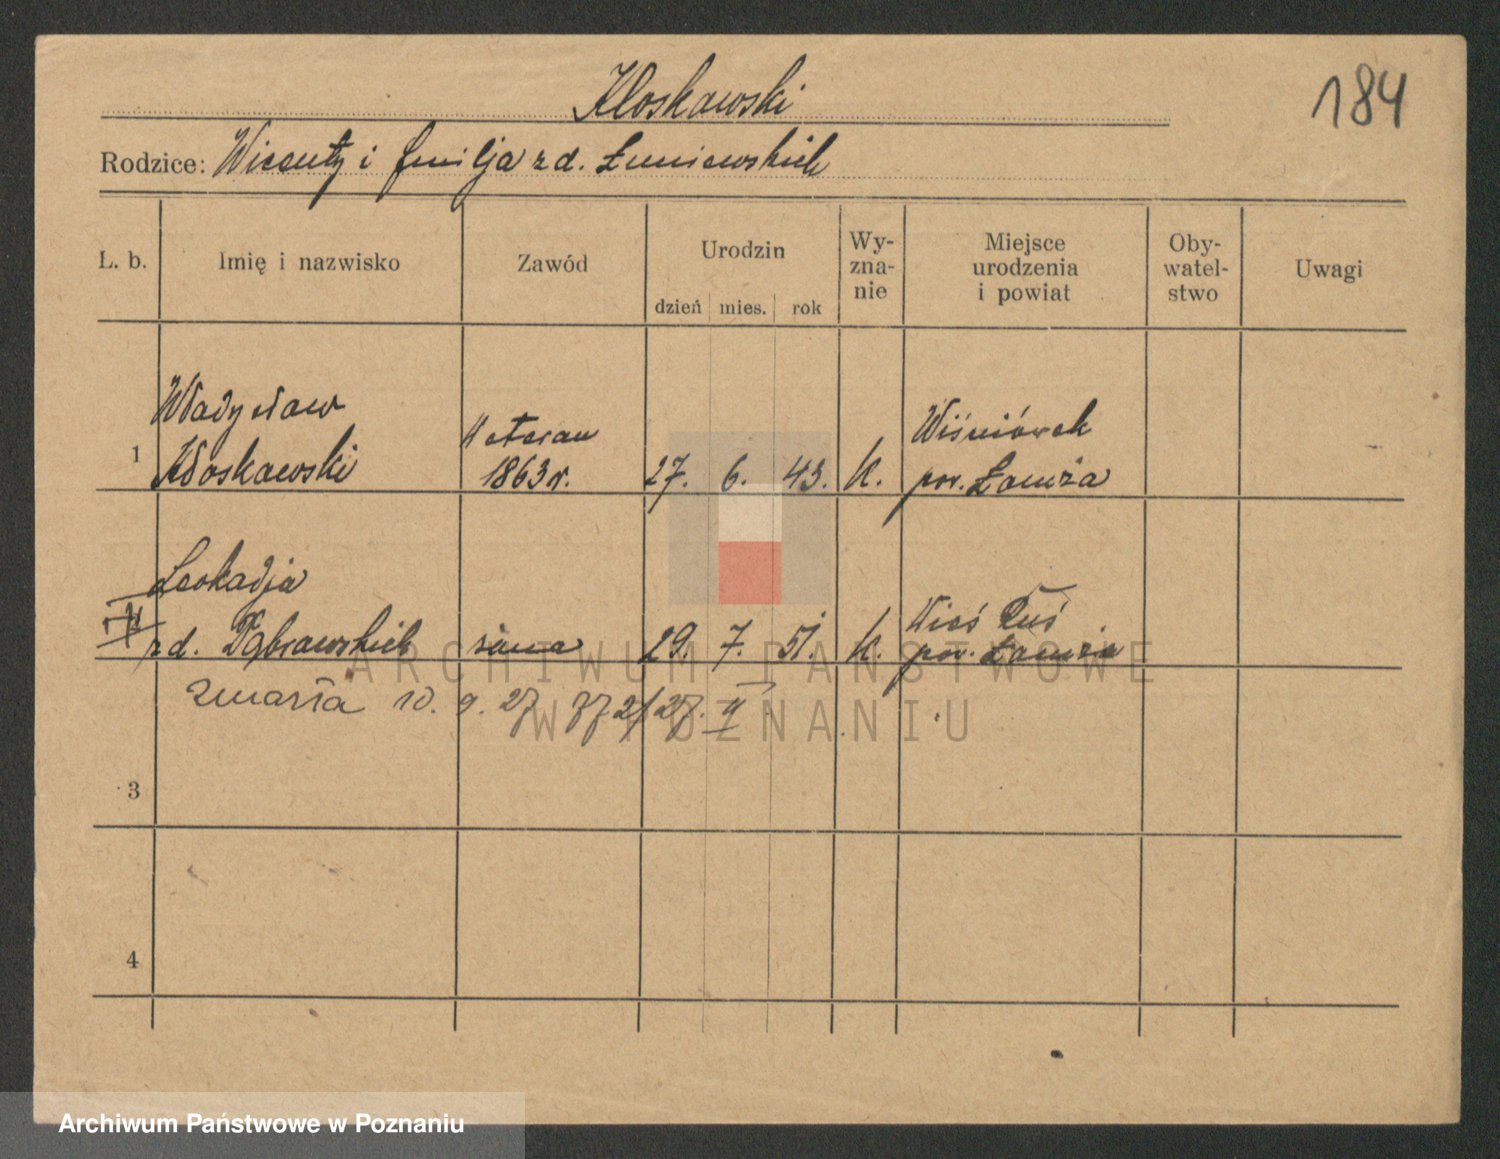 Kłoskowski
184
Rodzice: Wincenty i Emilja z d. Łuniewskich
L. b. Imię i nazwisko Zawód Urodzin dzień mies. rok Wy-zna-nie Miejsce urodzenia i powiat Oby-watel-stwo Uwagi
Władysław
1 Kłoskowski Weteran 1863 r. 27. 6. 43. k. Wiśniówek pow. Łomża
Leokadja
z d. Dąbrowskich żona 29. 7. 51. k. Wieś Ruś pow. Łomża
zmarła 10. 9. 27 772/27. II
3
4
ARCHIWUM PAŃSTWOWE
W POZNANIU
Archiwum Państwowe w Poznaniu